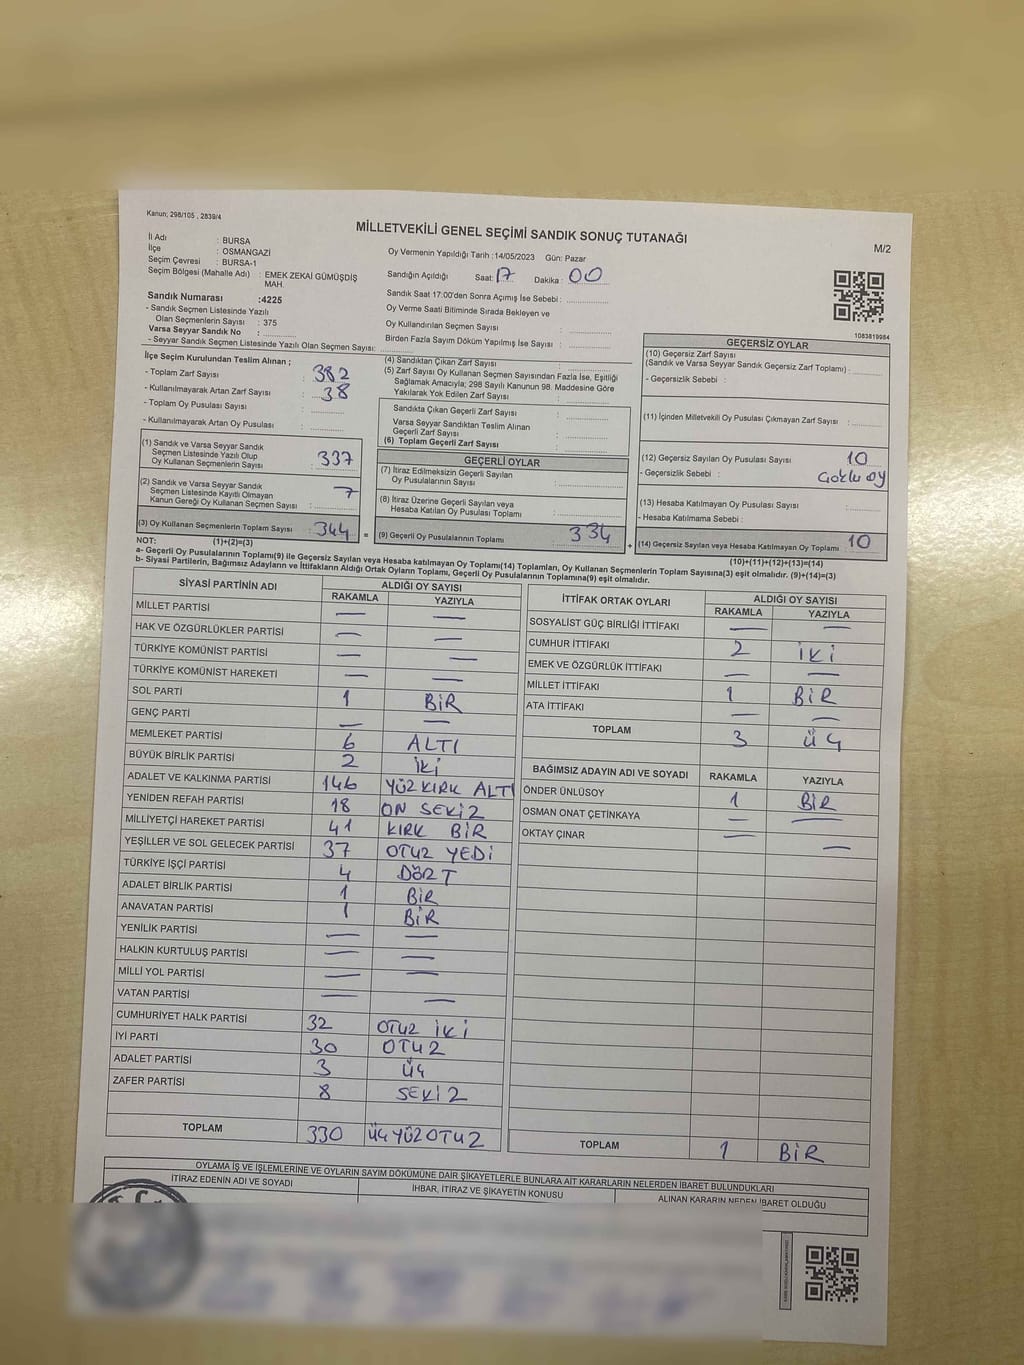 Kanun; 298/105 , 2839/4
MİLLETVEKİLİ GENEL SEÇİMİ SANDIK SONUÇ TUTANAĞI
M/2
İl Adı : BURSA
İlçe : OSMANGAZİ
Seçim Çevresi : BURSA-1
Seçim Bölgesi (Mahalle Adı) : EMEK ZEKAİ GÜMÜŞDİŞ
MAH.
Sandık Numarası :4225
- Sandık Seçmen Listesinde Yazılı
Olan Seçmenlerin Sayısı : 375
Varsa Seyyar Sandık No :
- Seyyar Sandık Seçmen Listesinde Yazılı Olan Seçmen Sayısı:
Oy Vermenin Yapıldığı Tarih :14/05/2023 Gün: Pazar
Sandığın Açıldığı Saat: 17 Dakika : 00
Sandık Saat 17:00'den Sonra Açımış İse Sebebi :
Oy Verme Saati Bitiminde Sırada Bekleyen ve
Oy Kullandırılan Seçmen Sayısı :
Birden Fazla Sayım Döküm Yapılmış İse Sayısı :
1083819984
İlçe Seçim Kurulundan Teslim Alınan ;
- Toplam Zarf Sayısı : 382
- Kullanılmayarak Artan Zarf Sayısı : 38
- Toplam Oy Pusulası Sayısı :
- Kullanılmayarak Artan Oy Pusulası :
(1) Sandık ve Varsa Seyyar Sandık
Seçmen Listesinde Yazılı Olup
Oy Kullanan Seçmenlerin Sayısı : 337
(2) Sandık ve Varsa Seyyar Sandık
Seçmen Listesinde Kayıtlı Olmayan
Kanun Gereği Oy Kullanan Seçmen Sayısı : 7
(3) Oy Kullanan Seçmenlerin Toplam Sayısı : 344
(4) Sandıktan Çıkan Zarf Sayısı :
(5) Zarf Sayısı Oy Kullanan Seçmen Sayısından Fazla İse, Eşitliği
Sağlamak Amacıyla; 298 Sayılı Kanunun 98. Maddesine Göre
Yakılarak Yok Edilen Zarf Sayısı :
Sandıkta Çıkan Geçerli Zarf Sayısı :
Varsa Seyyar Sandıktan Teslim Alınan
Geçerli Zarf Sayısı :
(6) Toplam Geçerli Zarf Sayısı :
GEÇERLİ OYLAR
(7) İtiraz Edilmeksizin Geçerli Sayılan
Oy Pusulalarının Sayısı :
(8) İtiraz Üzerine Geçerli Sayılan veya
Hesaba Katılan Oy Pusulası Toplamı :
= (9) Geçerli Oy Pusulalarının Toplamı : 334
GEÇERSİZ OYLAR
(10) Geçersiz Zarf Sayısı
(Sandık ve Varsa Seyyar Sandık Geçersiz Zarf Toplamı) :
- Geçersizlik Sebebi :
(11) İçinden Milletvekili Oy Pusulası Çıkmayan Zarf Sayısı :
(12) Geçersiz Sayılan Oy Pusulası Sayısı : 10
- Geçersizlik Sebebi : Çoklu oy
(13) Hesaba Katılmayan Oy Pusulası Sayısı :
- Hesaba Katılmama Sebebi :
+ (14) Geçersiz Sayılan veya Hesaba Katılmayan Oy Toplamı : 10
NOT: (1)+(2)=(3) (10)+(11)+(12)+(13)=(14)
a- Geçerli Oy Pusulalarının Toplamı(9) ile Geçersiz Sayılan veya Hesaba katılmayan Oy Toplamı(14) Toplamları, Oy Kullanan Seçmenlerin Toplam Sayısına(3) eşit olmalıdır. (9)+(14)=(3)
b- Siyasi Partilerin, Bağımsız Adayların ve İttifakların Aldığı Ortak Oyların Toplamı, Geçerli Oy Pusulalarının Toplamına(9) eşit olmalıdır.
SİYASİ PARTİNİN ADI ALDIĞI OY SAYISI
RAKAMLA YAZIYLA
MİLLET PARTİSI — —
HAK VE ÖZGÜRLÜKLER PARTİSİ — —
TÜRKİYE KOMÜNİST PARTİSİ — —
TÜRKİYE KOMÜNİST HAREKETİ — —
SOL PARTİ 1 BİR
GENÇ PARTİ — —
MEMLEKET PARTİSİ 6 ALTI
BÜYÜK BİRLİK PARTİSİ 2 İKİ
ADALET VE KALKINMA PARTİSİ 146 YÜZ KIRK ALTI
YENİDEN REFAH PARTİSİ 18 ON SEKİZ
MİLLİYETÇİ HAREKET PARTİSİ 41 KIRK BİR
YEŞİLLER VE SOL GELECEK PARTİSİ 37 OTUZ YEDİ
TÜRKİYE İŞÇİ PARTİSİ 4 DÖRT
ADALET BİRLİK PARTİSİ 1 BİR
ANAVATAN PARTİSİ 1 BİR
YENİLİK PARTİSİ — —
HALKIN KURTULUŞ PARTİSİ — —
MİLLİ YOL PARTİSİ — —
VATAN PARTİSİ — —
CUMHURİYET HALK PARTİSİ 32 OTUZ İKİ
İYİ PARTİ 30 OTUZ
ADALET PARTİSİ 3 ÜÇ
ZAFER PARTİSİ 8 SEKİZ
TOPLAM 330 ÜÇ YÜZ OTUZ
İTTİFAK ORTAK OYLARI ALDIĞI OY SAYISI
RAKAMLA YAZIYLA
SOSYALİST GÜÇ BİRLİĞİ İTTİFAKI — —
CUMHUR İTTİFAKI 2 İKİ
EMEK VE ÖZGÜRLÜK İTTİFAKI — —
MİLLET İTTİFAKI 1 BİR
ATA İTTİFAKI — —
TOPLAM 3 ÜÇ
BAĞIMSIZ ADAYIN ADI VE SOYADI RAKAMLA YAZIYLA
ÖNDER ÜNLÜSOY 1 BİR
OSMAN ONAT ÇETİNKAYA — —
OKTAY ÇINAR — —
TOPLAM 1 BİR
OYLAMA İŞ VE İŞLEMLERİNE VE OYLARIN SAYIM DÖKÜMÜNE DAİR ŞİKAYETLERLE BUNLARA AİT KARARLARIN NELERDEN İBARET BULUNDUKLARI
İTİRAZ EDENİN ADI VE SOYADI İHBAR, İTİRAZ VE ŞİKAYETİN KONUSU ALINAN KARARIN NEDEN İBARET OLDUĞU